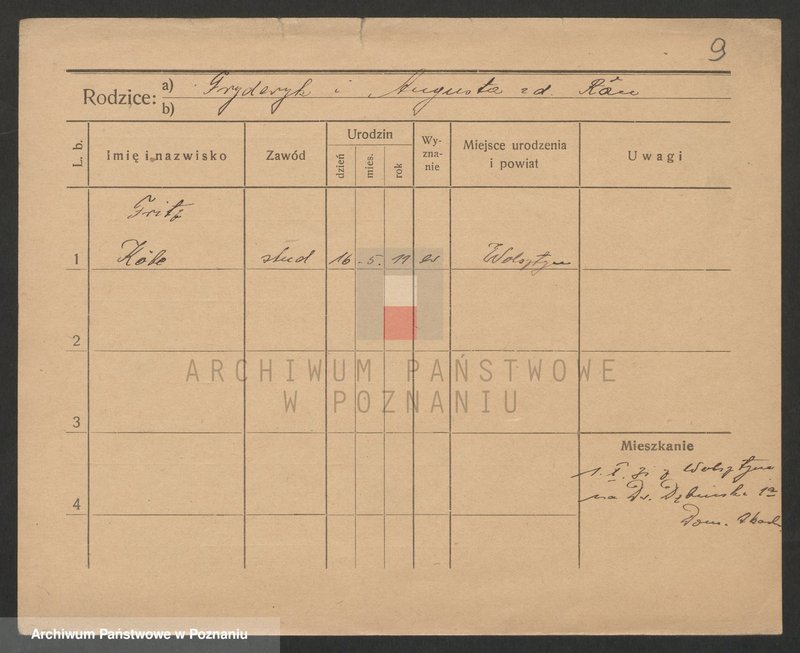 9
Rodzice: a) Fryderyk i Augusta zd.
b)
L. b. Imię i nazwisko Zawód Urodzin dzień mies. rok Wy-zna-nie Miejsce urodzenia i powiat Uwagi
Fritz
1 Köbe stud 16 - 5. 11 ew Wolsztyn
2
ARCHIWUM PAŃSTWOWE
W POZNANIU
3
Mieszkanie
1. X. z Wolsztyna
4 na Dębińska 1a
Dom.
Archiwum Państwowe w Poznaniu